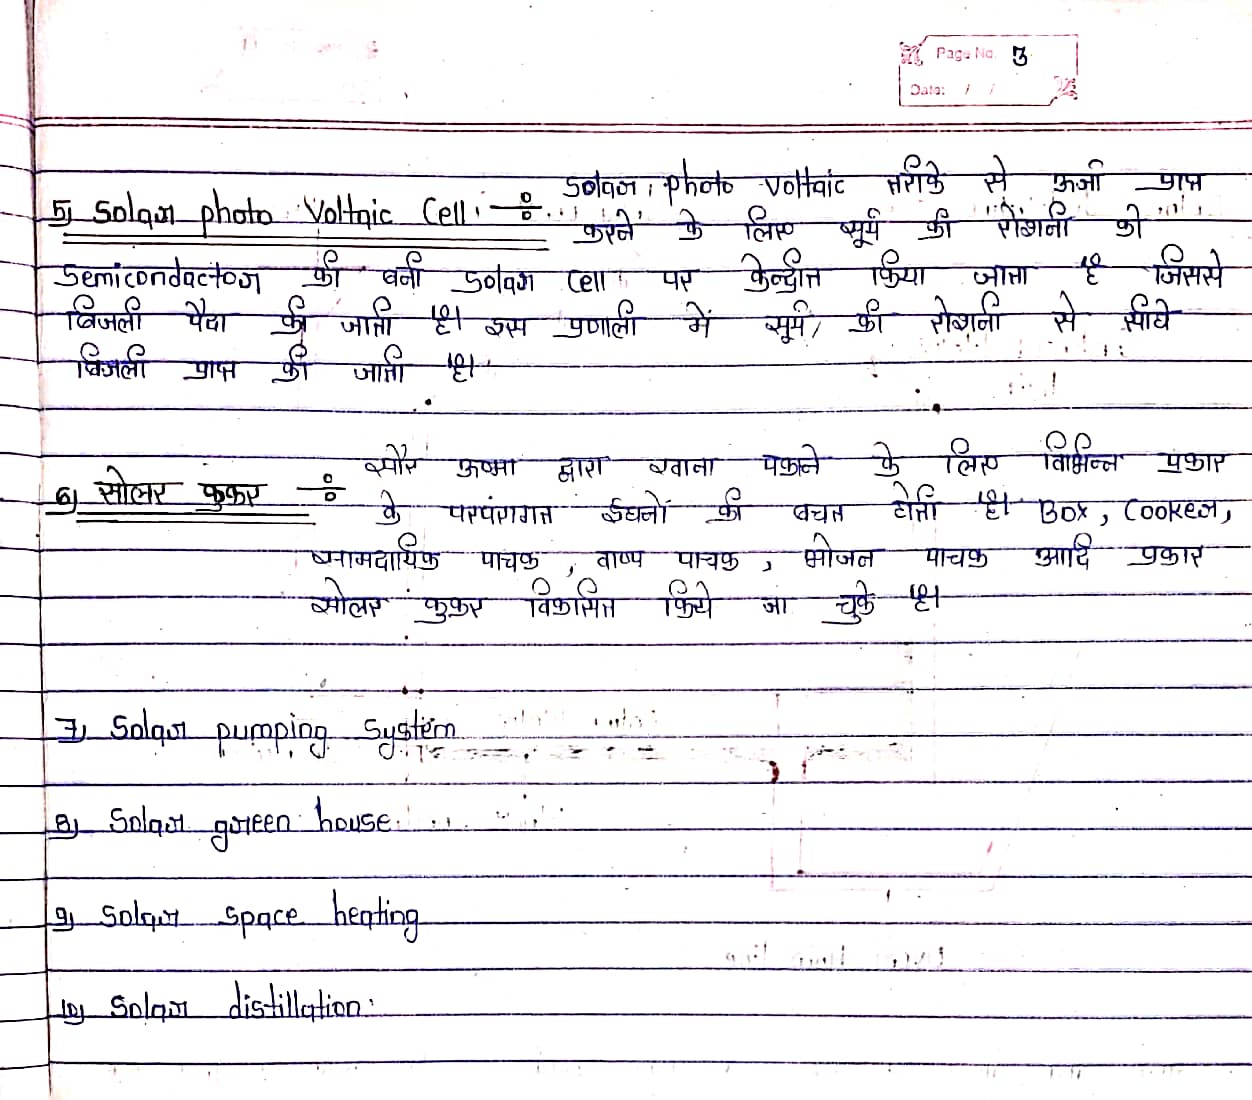 Page No. 3
Date: / /
5) Solar photo Voltaic Cell :- Solar photo Voltaic तरीके से ऊर्जा प्राप्त
करने के लिए सूर्य की रोशनी को
Semicondactor की बनी Solar Cell पर केन्द्रीत किया जाता है जिससे
बिजली पैदा की जाती है। इस प्रणाली में सूर्य की रोशनी से सीधे
बिजली प्राप्त की जाती है।
6) सोलर कुकर :- सौर ऊष्मा द्वारा खाना पकाने के लिए विभिन्न प्रकार
के परपंरागत ईघनों की बचत होती है। Box, Cooker,
सामदायिक पाचक, वाष्प पाचक, भोजन पाचक आदि प्रकार
सोलर कुकर विकसित किये जा चुके है।
7) Solar pumping System
8) Solar green house
9) Solar space heating
10) Solar distillation